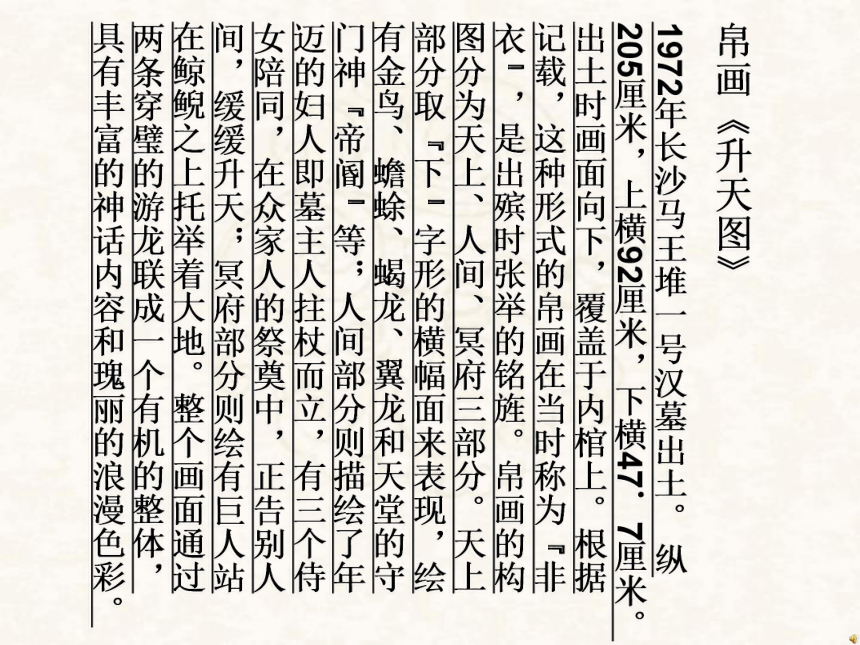 帛画《升天图》
1972年长沙马王堆一号汉墓出土。 纵
205厘米，上横92厘米，下横47．7厘米。
出土时画面向下，覆盖于内棺上。根据
记载，这种形式的帛画在当时称为『非
衣』，是出殡时张举的铭旌。帛画的构
图分为天上、人间、冥府三部分。天上
部分取『下』字形的横幅面来表现，绘
有金鸟、蟾蜍、蝎龙、翼龙和天堂的守
门神『帝阍』等；人间部分则描绘了年
迈的妇人即墓主人拄杖而立，有三个侍
女陪同，在众家人的祭奠中，正告别人
间，缓缓升天；冥府部分则绘有巨人站
在鲸鲵之上托举着大地。整个画面通过
两条穿璧的游龙联成一个有机的整体，
具有丰富的神话内容和瑰丽的浪漫色彩。